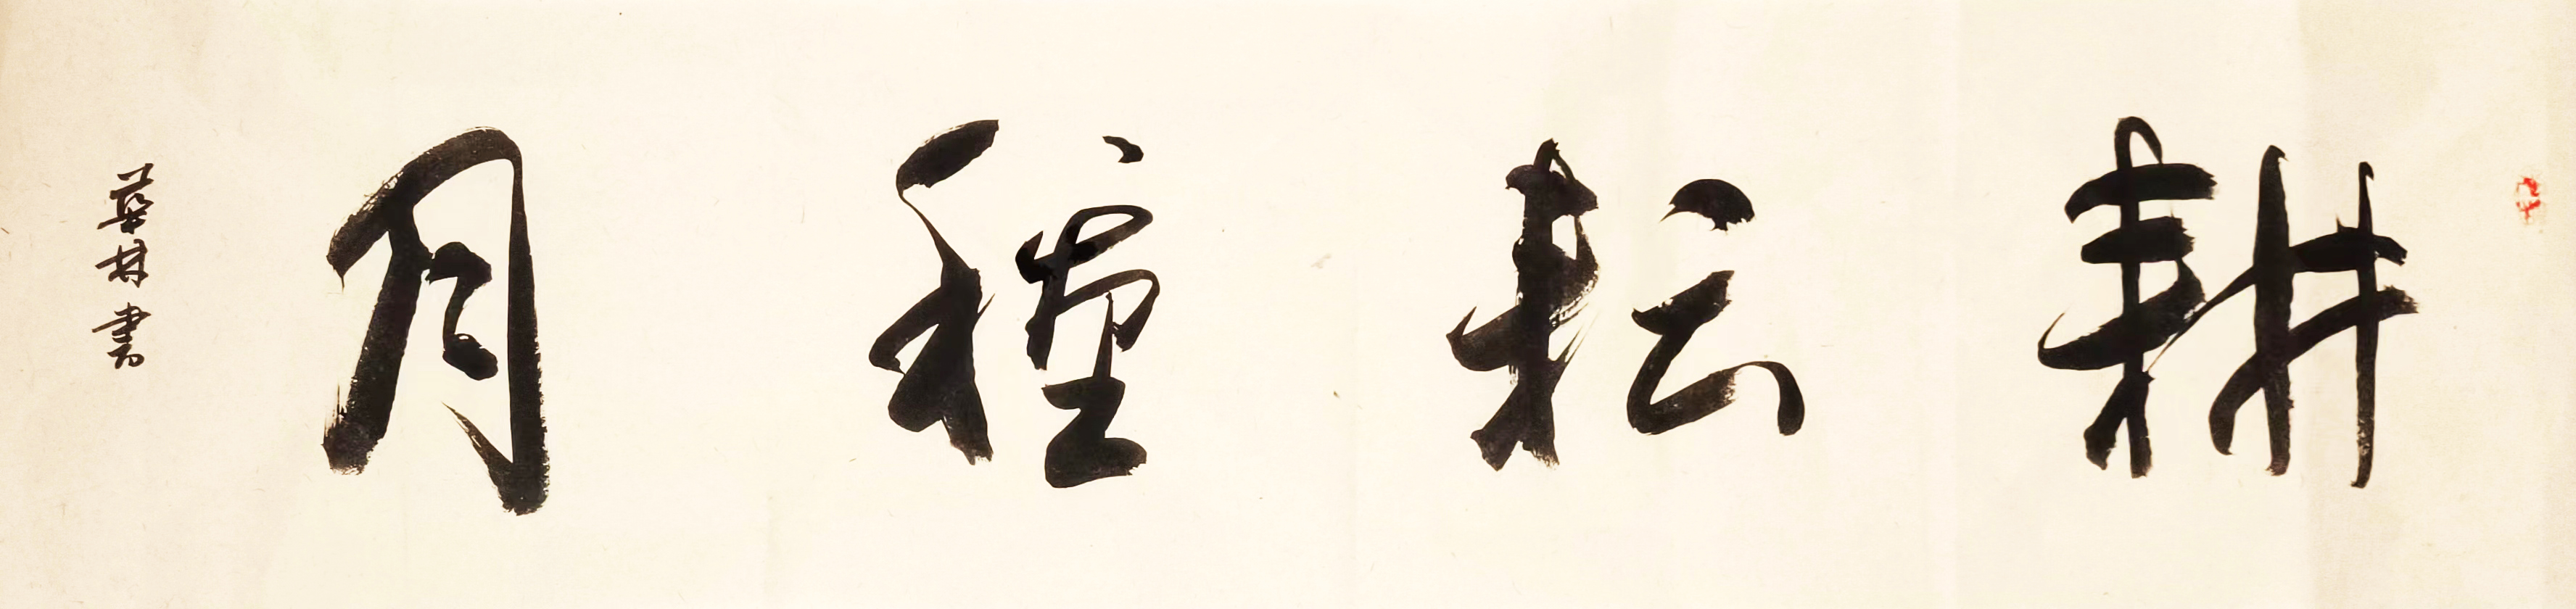 耕耘種月
華林書